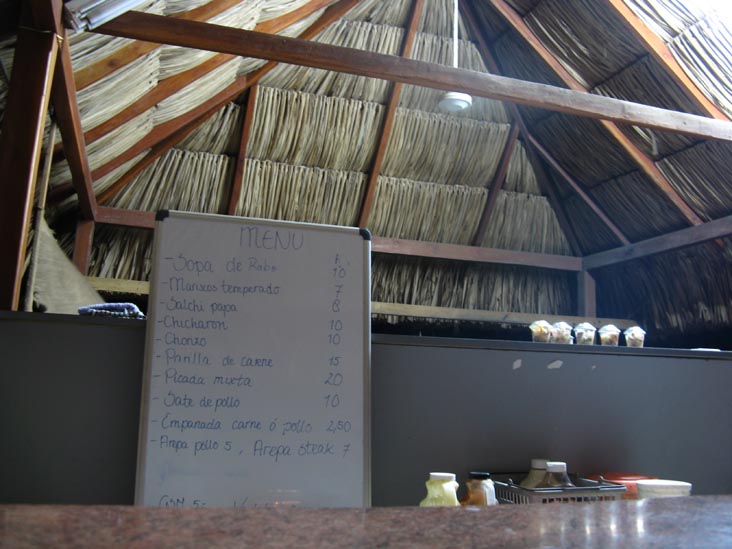 MENU
- Sopa de Rabo 10
- Mariscos temperado 7
- Salchi papa 8
- Chicharon 10
- Chorizo 10
- Parilla de carne 15
- Picada mixta 20
- Sate de pollo 10
- Empanada carne ó pollo 2,50
- Arepa pollo 5, Arepa steak 7